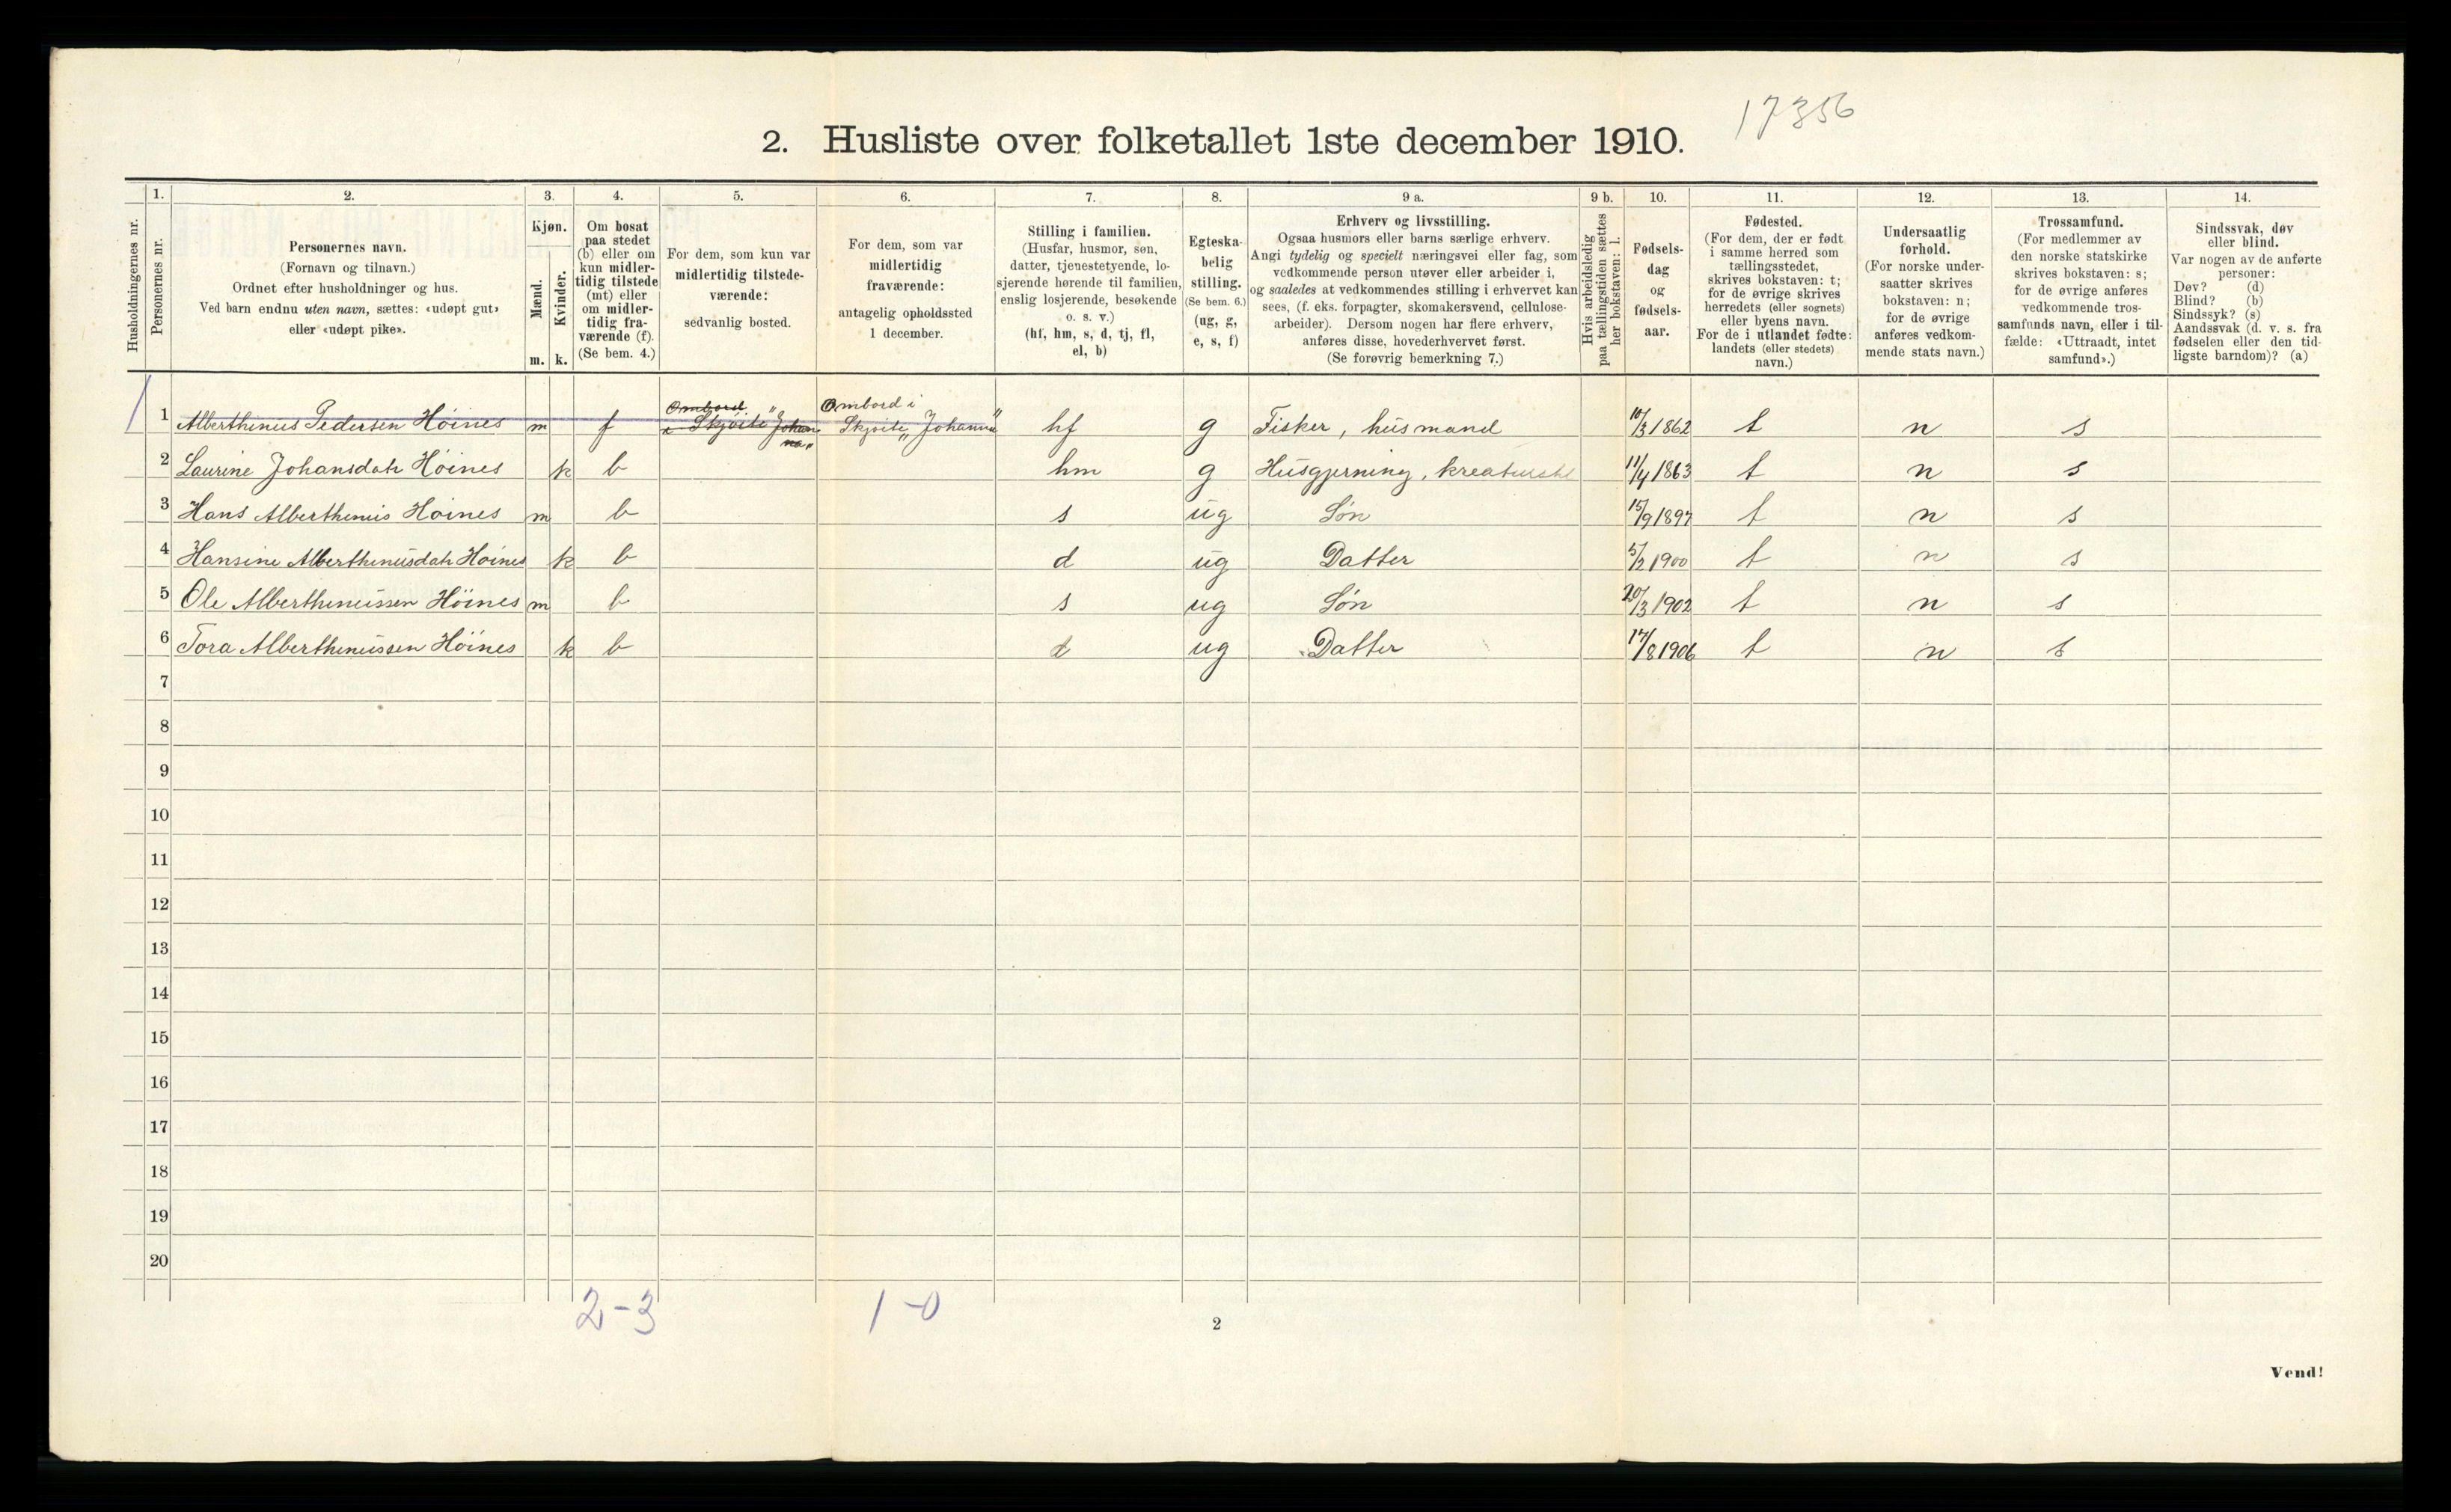 17356
2. Husliste over folketallet 1ste december 1910.
Husholdningernes nr.
1.
Personernes nr.
2.
Personernes navn.
(Fornavn og tilnavn.)
Ordnet efter husholdninger og hus.
Ved barn endnu uten navn, sættes: «udøpt gut»
eller «udøpt pike».
3.
Kjøn.
Mænd.
Kvinder.
m.
k.
4.
Om bosat
paa stedet
(b) eller om
kun midler-
tidig tilstede
(mt) eller
om midler-
tidig fra-
værende (f).
(Se bem. 4.)
5.
For dem, som kun var
midlertidig tilstede-
værende:
sedvanlig bosted.
6.
For dem, som var
midlertidig
fraværende:
antagelig opholdssted
1 december.
7.
Stilling i familien.
(Husfar, husmor, søn,
datter, tjenestetyende, lo-
sjerende hørende til familien,
enslig losjerende, besøkende
o. s. v.)
(hf, hm, s, d, tj, fl,
el, b)
8.
Egteska-
belig
stilling.
(Se bem. 6.)
(ug, g,
e, s, f)
9 a.
Erhverv og livsstilling.
Ogsaa husmors eller barns særlige erhverv.
Angi tydelig og specielt næringsvei eller fag, som
vedkommende person utøver eller arbeider i,
og saaledes at vedkommendes stilling i erhvervet kan
sees, (f. eks. forpagter, skomakersvend, cellulose-
arbeider). Dersom nogen har flere erhverv,
anføres disse, hovederhvervet først.
(Se forøvrig bemerkning 7.)
9 b.
Hvis arbeidsledig
paa tællingstiden sættes
her bokstaven: l.
10.
Fødsels-
dag
og
fødsels-
aar.
11.
Fødested.
(For dem, der er født
i samme herred som
tællingsstedet,
skrives bokstaven: t;
for de øvrige skrives
herredets (eller sognets)
eller byens navn.
For de i utlandet fødte:
landets (eller stedets)
navn.)
12.
Undersaatlig
forhold.
(For norske under-
saatter skrives
bokstaven: n;
for de øvrige
anføres vedkom-
mende stats navn.)
13.
Trossamfund.
(For medlemmer av
den norske statskirke
skrives bokstaven: s;
for de øvrige anføres
vedkommende tros-
samfunds navn, eller i til-
fælde: «Uttraadt, intet
samfund».)
14.
Sindssvak, døv
eller blind.
Var nogen av de anførte
personer:
Døv? (d)
Blind? (b)
Sindssyk? (s)
Aandssvak (d. v. s. fra
fødselen eller den tid-
ligste barndom)? (a)
1 Alberthinus Pedersen Höines m f Ombord i Skjöite "Johanna" Ombord i Skjöite "Johanna" hf g Fisker, husmand 10/3 1862 t n s
2 Laurine Johansdatr Höines k b hm g Husgjerning, kreaturstel 11/4 1863 t n s
3 Hans Alberthinus Höines m b s ug Søn 15/9 1897 t n s
4 Hansine Alberthinusdatr Höines k b d ug Datter 5/2 1900 t n s
5 Ole Alberthinussen Höines m b s ug Søn 20/3 1902 t n s
6 Tora Alberthinussen Höines k b d ug Datter 17/8 1906 t n s
7
8
9
10
11
12
13
14
15
16
17
18
19
20
2-3 1-0
2
Vend!